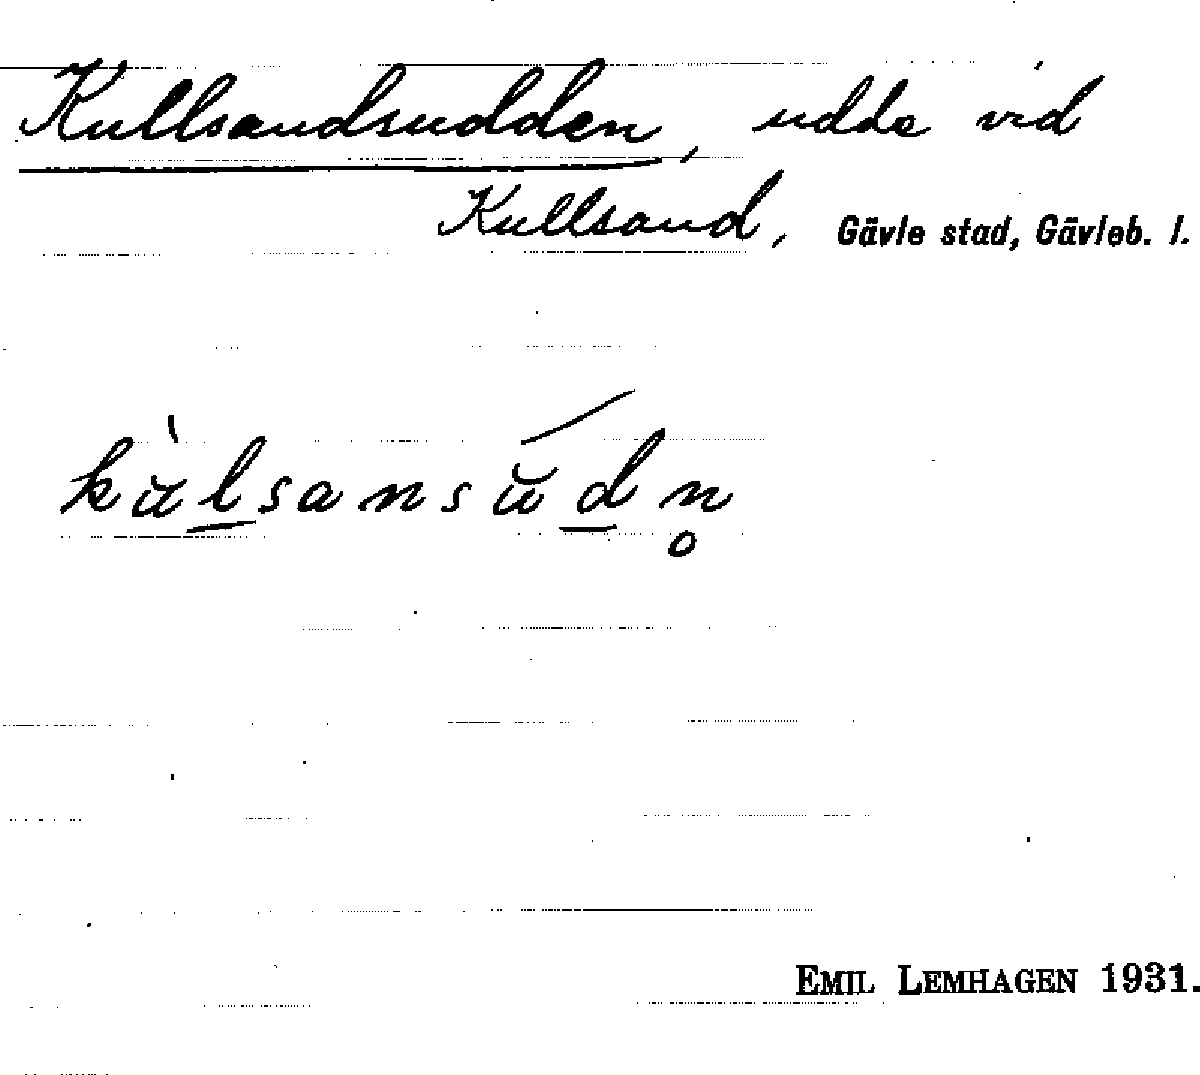 Kullsandsudden, udde vid
Kullsand, Gävle stad, Gävleb. l.
kùl̲sansúd̲n̥
EMIL LEMHAGEN 1931.